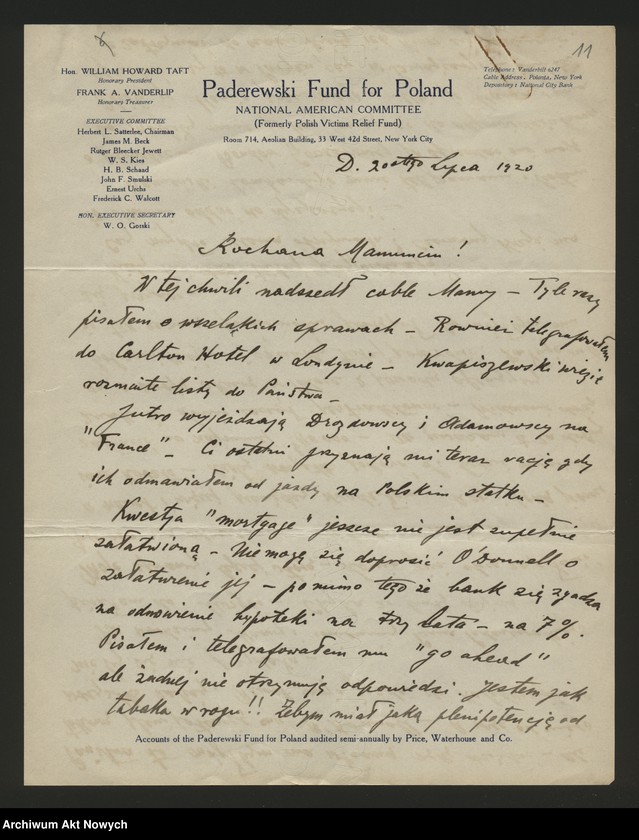 11
Hon. WILLIAM HOWARD TAFT
Honorary President
FRANK A. VANDERLIP
Honorary Treasurer
EXECUTIVE COMMITTEE
Herbert L. Satterlee, Chairman
James M. Beck
Rutger Bleecker Jewett
W. S. Kies
H. B. Schaad
John F. Smulski
Ernest Urchs
Frederic C. Walcott
HON. EXECUTIVE SECRETARY
W. O. Gorski
Paderewski Fund for Poland
NATIONAL AMERICAN COMMITTEE
(Formerly Polish Victims Relief Fund)
Room 714, Aeolian Building, 33 West 42d Street, New York City
Telephone: Vanderbilt 6247
Cable Address: Polonia, New York
Depository: National City Bank
D. 20stego Lipca 1920
Kochana Mamuniu!
W tej chwili nadszedł cable Mamy – Tyle razy
pisałem o wszelakich sprawach – Rownież telegrafowałem
do Carlton Hotel w Londynie – Kwapiszewski wiezie
rozmaite listy do Państwa –
Jutro wyjeżdzają Drozdowscy i Adamowscy na
"France" – Ci ostatni przyznają mi teraz rację gdy
ich odmawiałem od jazdy na Polskim statku –
Kwestja "mortgage" jeszcze nie jest zupełnie
załatwioną – Nie mogę się doprosić O'Donnell o
załatwienie jej – pomimo tego że bank się zgadza
na odnowienie hypoteki na trzy lata – na 7%.
Pisałem i telegrafowałem mu "go ahead"
ale żadnej nie otrzymuję odpowiedzi. Jestem jak
tabaka w rogu!! Żebym miał jaką plenipotencję od
Accounts of the Paderewski Fund for Poland audited semi-annually by Price, Waterhouse and Co.
Archiwum Akt Nowych